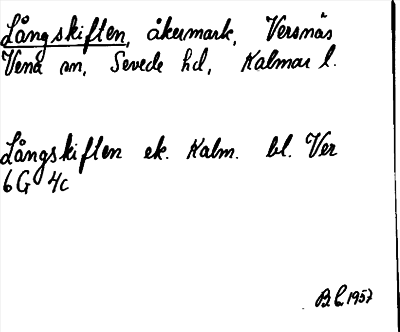 Långskiften, åkermark, Versnäs
Vena sn, Sevede hd, Kalmar l.
Långskiften ek. Kalm. bl. Ver
6G 4c
B.L. 1957